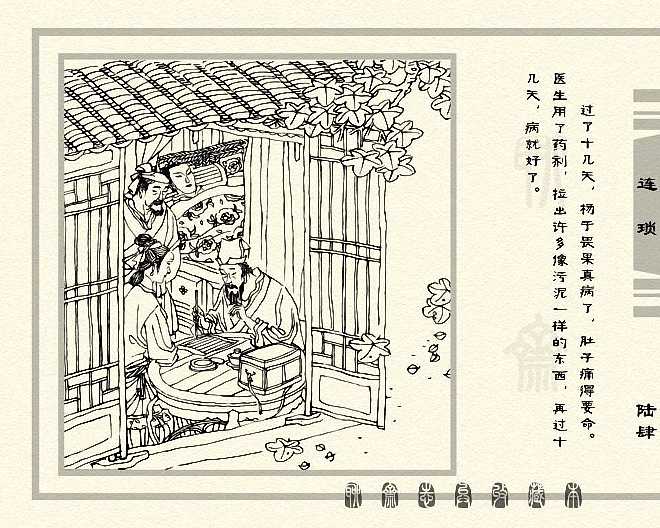 过了十几天，杨于畏果真病了，肚子痛得要命。
医生用了药剂，拉出许多像污泥一样的东西，再过十
几天，病就好了。
连琐
陆肆
聊斋志异收藏本